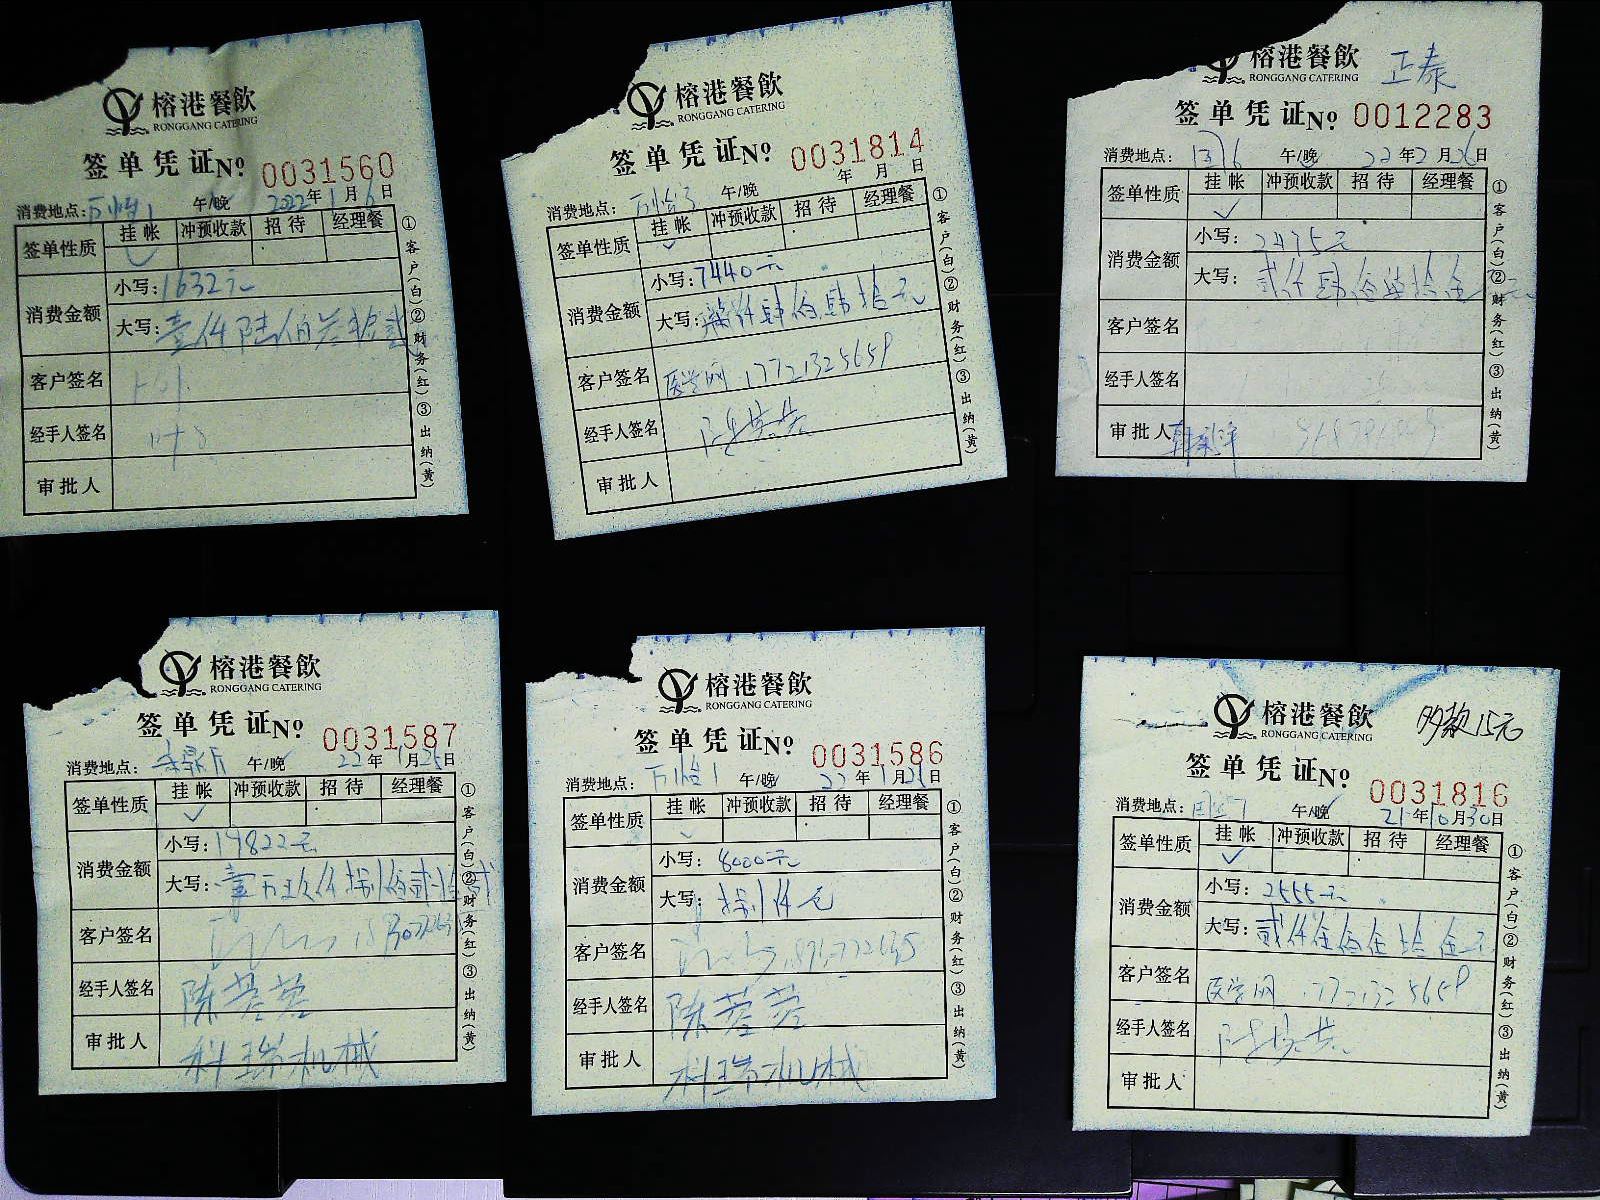 榕港餐飲
RONGGANG CATERING
签单凭证№ 0031560
消费地点:万怡1 午/晚 2022年1月6日
签单性质 挂帐 冲预收款 招待 经理餐
消费金额
小写:1632元
大写:壹仟陆佰叁拾贰
客户签名
经手人签名
审批人
①客户(白)②财务(红)③出纳(黄)
榕港餐飲
RONGGANG CATERING
签单凭证№ 0031814
消费地点:万怡3 午/晚 年 月 日
签单性质 挂帐 冲预收款 招待 经理餐
消费金额
小写:7440元
大写:柒仟肆佰肆拾元
客户签名 医学网 17721325659
经手人签名
审批人
①客户(白)②财务(红)③出纳(黄)
榕港餐飲 正泰
RONGGANG CATERING
签单凭证№ 0012283
消费地点:1376 午/晚 22年2月26日
签单性质 挂帐 冲预收款 招待 经理餐
消费金额
小写:2475元
大写:贰仟肆佰柒拾伍元
客户签名
经手人签名
审批人
①客户(白)②财务(红)③出纳(黄)
榕港餐飲
RONGGANG CATERING
签单凭证№ 0031587
消费地点: 午/晚 22年1月25日
签单性质 挂帐 冲预收款 招待 经理餐
消费金额
小写:19822元
大写:壹万玖仟捌佰贰拾贰
客户签名
经手人签名 陈蓉蓉
审批人 科瑞机械
①客户(白)②财务(红)③出纳(黄)
榕港餐飲
RONGGANG CATERING
签单凭证№ 0031586
消费地点:万怡1 午/晚 22年1月25日
签单性质 挂帐 冲预收款 招待 经理餐
消费金额
小写:8000元
大写:捌仟元
客户签名
经手人签名 陈蓉蓉
审批人 科瑞机械
①客户(白)②财务(红)③出纳(黄)
榕港餐飲 多款15元
RONGGANG CATERING
签单凭证№ 0031816
消费地点: 午/晚 21年10月30日
签单性质 挂帐 冲预收款 招待 经理餐
消费金额
小写:2555元
大写:贰仟伍佰伍拾伍元
客户签名 医学网 17721325659
经手人签名
审批人
①客户(白)②财务(红)③出纳(黄)